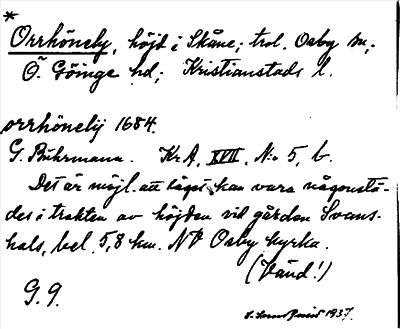 *
Orrhönely, höjd i Skåne; trol. Osby sn,
Ö. Göinge hd; Kristianstads l.
orrhönelij 1684.
G. Buhrmann. Kr A. XVII, N:o 5, b.
Det är möjl. att läget kan vara någonstä-
des i trakten av höjden vid gården Svans-
hals, bel. 5,8 km. NV Osby kyrka.
(Vänd!)
G. 9.
1937.